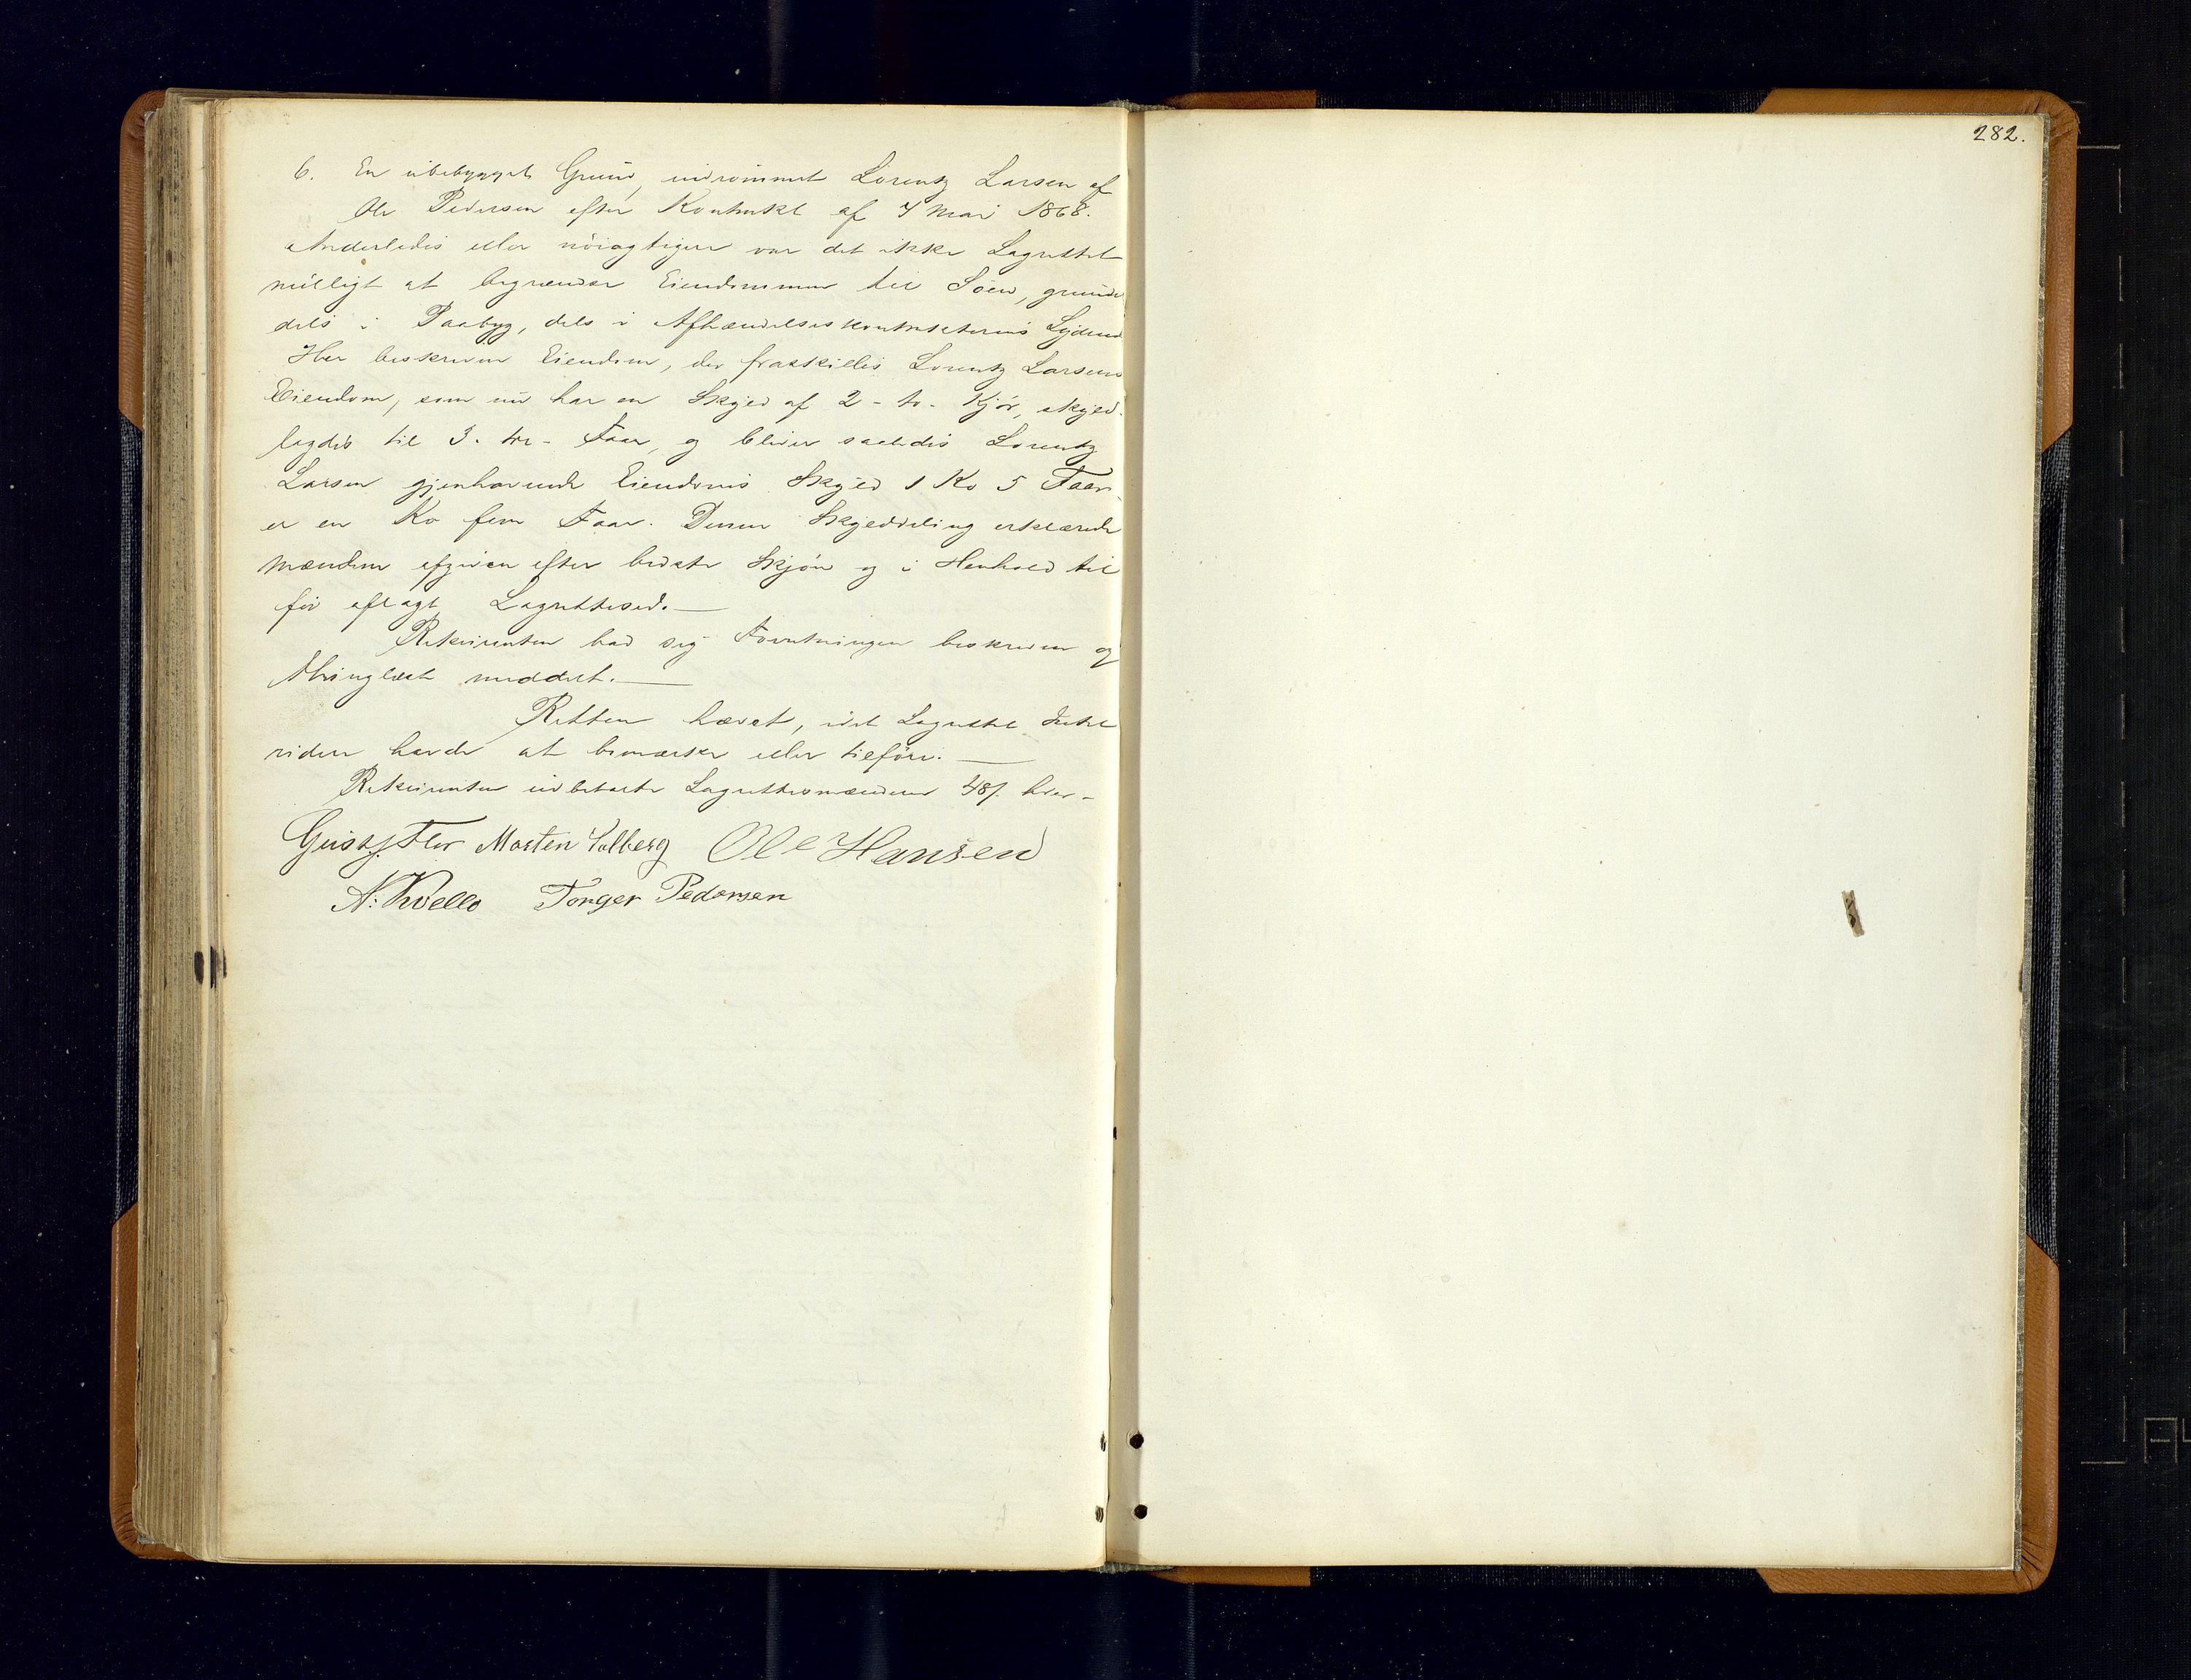 282.
6. En ubebygget Grund, indrømmet Lorentz Larsen af
Ole Pedersen efter Kontrakt af 7 Mai 1868.
Anderledes eller nöiagtigere var det ikke Lagrettet
muligt at begrændse Eiendommen til Söen, grundet
dels i Paabyg, dels i Afhændelseskontrakternes Lydende
Her beskrevne Eiendom, der fraskilles Lorentz Larsens
Eiendom, som nu har en Skyld af 2 - to - Kjör, skyld-
lagdes til 3 - tre - Faar, og bliver saaledes Lorentz
Larsen gjenhavende Eiendoms Skyld 1 Ko 5 Faar
er en Ko fem Faar. Denne Skylddeling erklærede
Mændene afgiven efter bedste Skjön og i Henhold til
för aflagt Lagrettesed. —
Rekvirenten bad sig Forretningen beskreven og
thinglæst meddelt. —
Retten hævet, idet Lagrettet Intet
videre havde at bemærke eller tilföre. —
Rekvirenten udbetalte Lagrettesmændene 48/ hver -
Morten Ole Hansen
A: Kvello Torger Pedersen